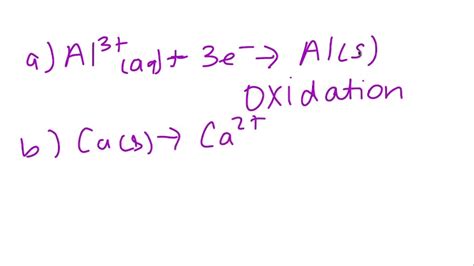 a) Al³⁺(aq) + 3e⁻ → Al(s)
Oxidation
b) Ca(s) → Ca²⁺